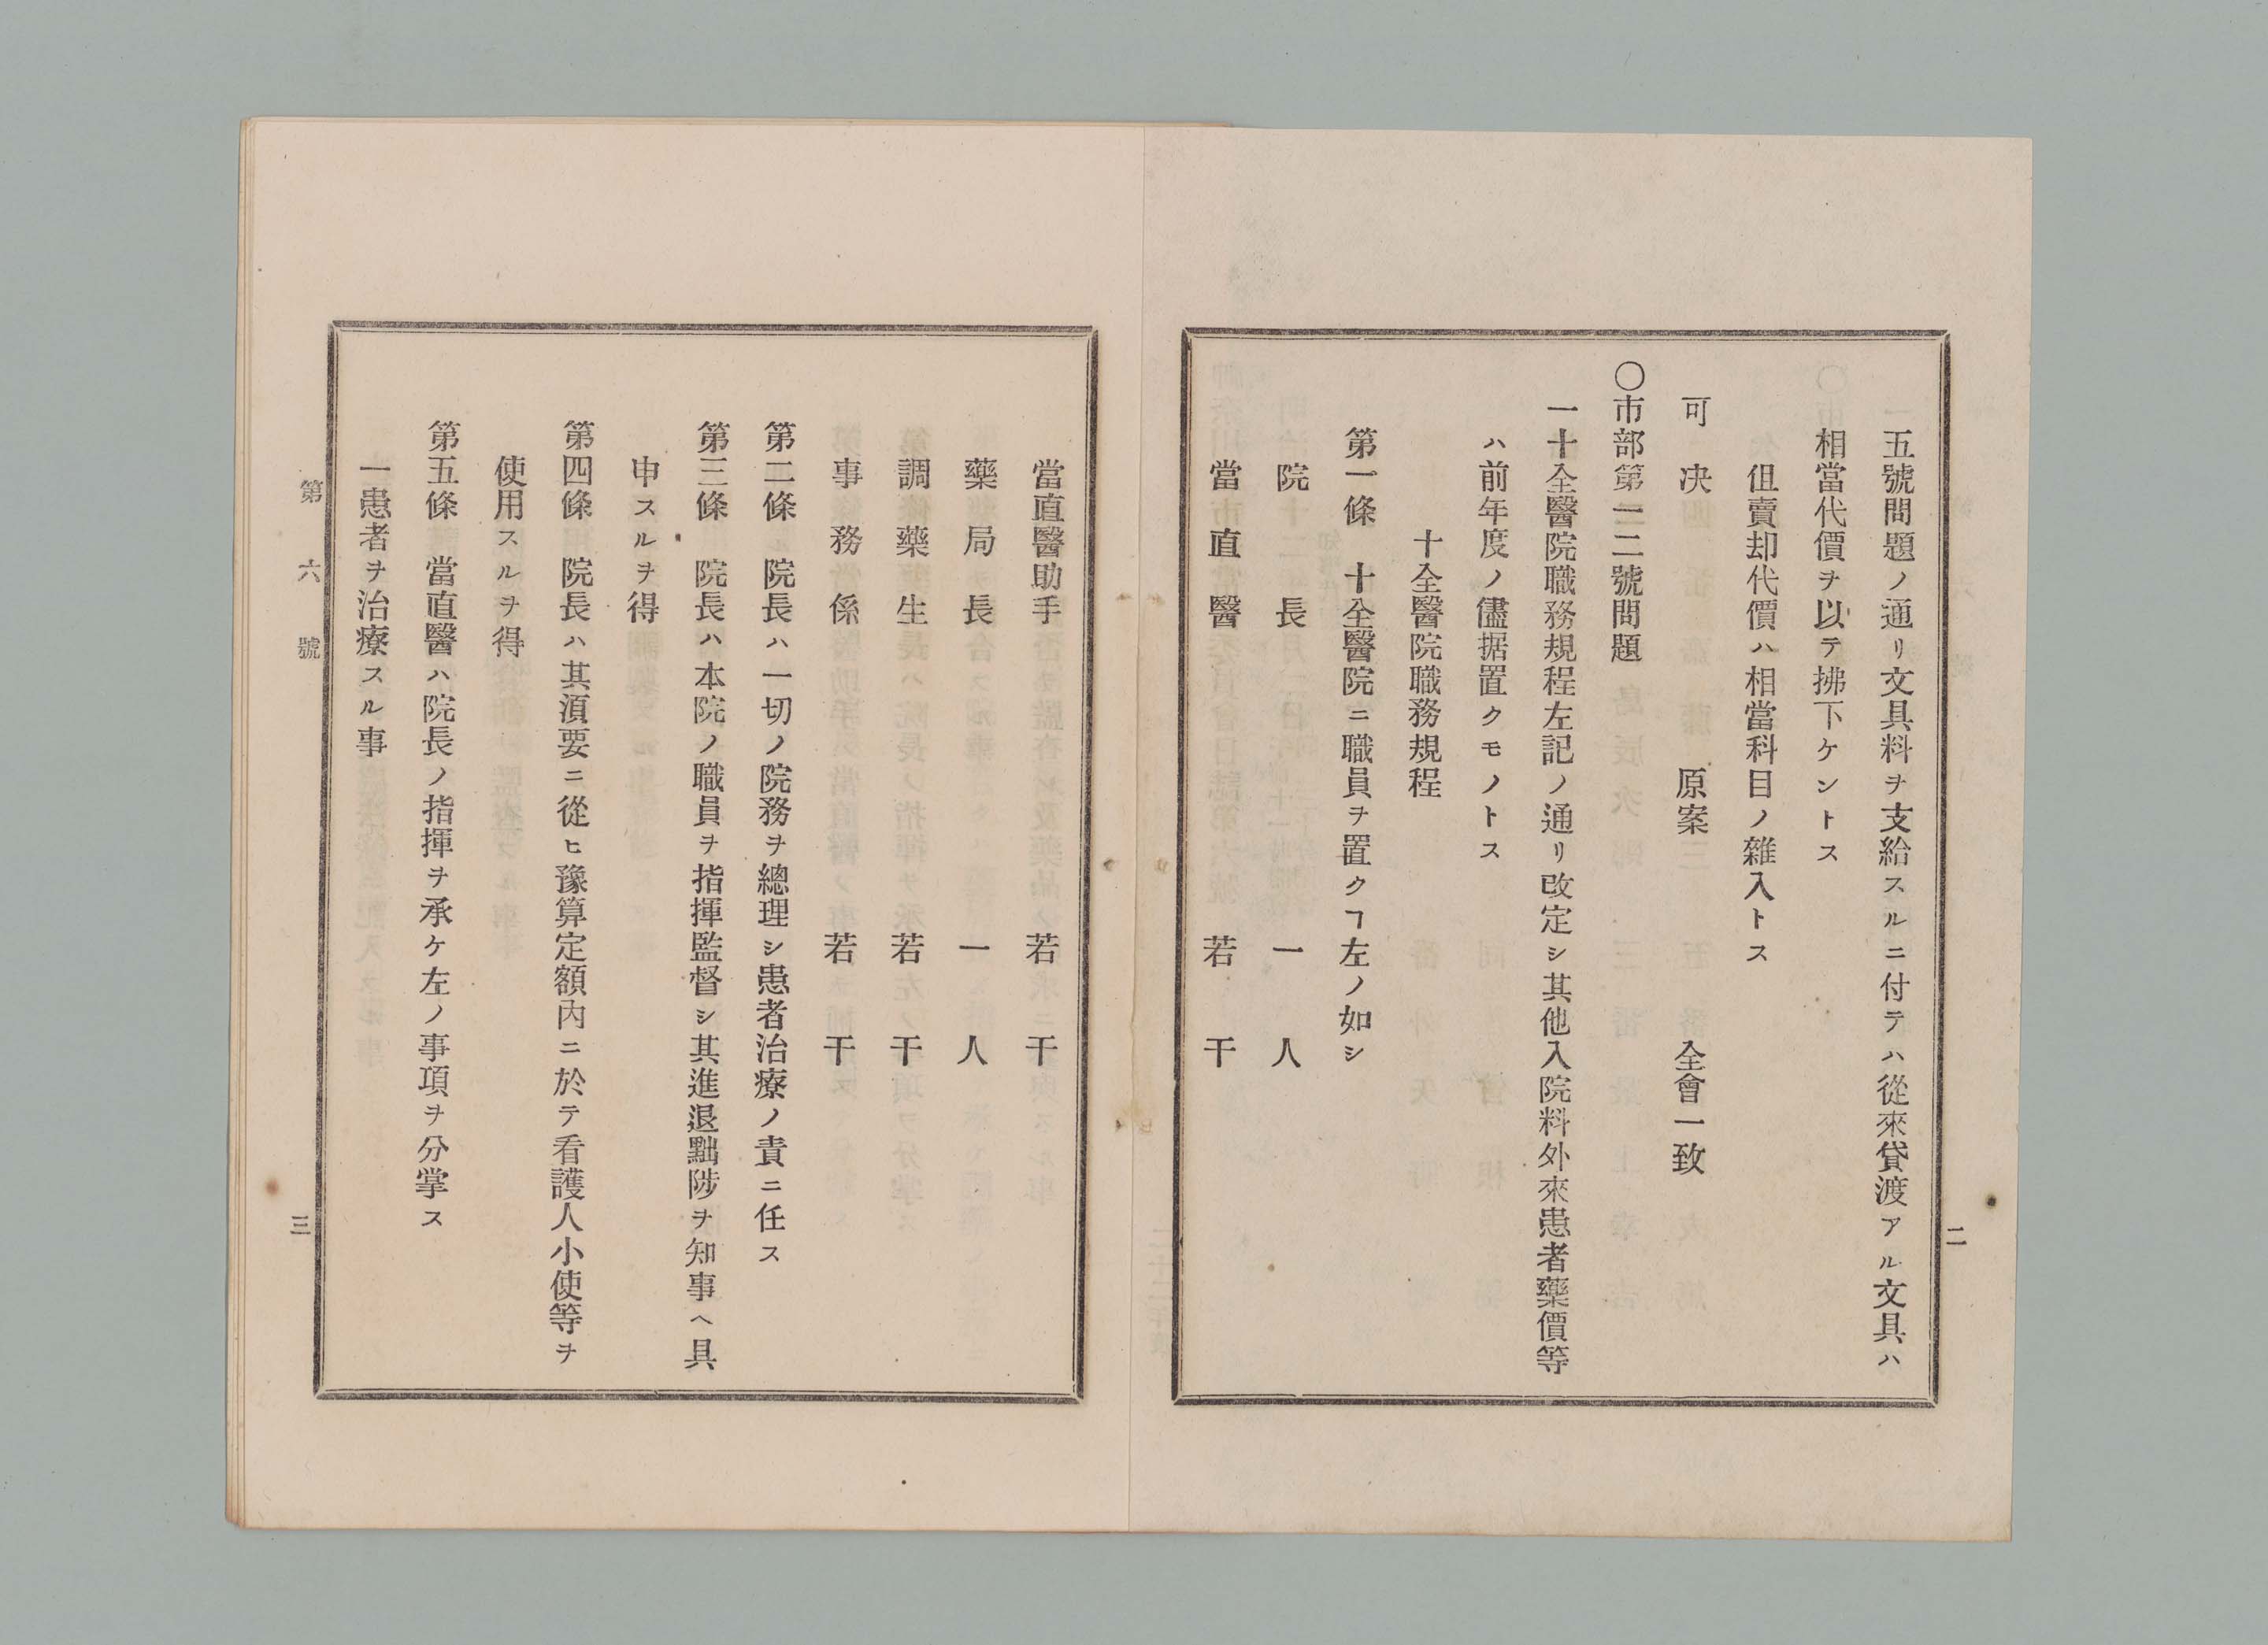 二
五號問題ノ通リ文具料ヲ支給スルニ付テハ從來貸渡アル文具ハ
相當代價ヲ以テ拂下ケントス
但賣却代價ハ相當科目ノ雜入トス
可決 原案 全會一致
〇市部第一二號問題
一十全醫院職務規程左記ノ通リ改定シ其他入院料外來患者藥價等
ハ前年度ノ儘据置クモノトス
十全醫院職務規程
第一條 十全醫院ニ職員ヲ置クヿ左ノ如シ
院長 一人
當直醫 若干
當直醫助手 若干
藥局長 一人
調藥生 若干
事務係 若干
第二條 院長ハ一切ノ院務ヲ總理シ患者治療ノ責ニ任ス
第三條 院長ハ本院ノ職員ヲ指揮監督シ其進退黜陟ヲ知事ヘ具
申スルヲ得
第四條 院長ハ其湏要ニ從ヒ豫算定額內ニ於テ看護人小使等ヲ
使用スルヲ得
第五條 當直醫ハ院長ノ指揮ヲ承ケ左ノ事項ヲ分掌ス
一患者ヲ治療スル事
第六號 三